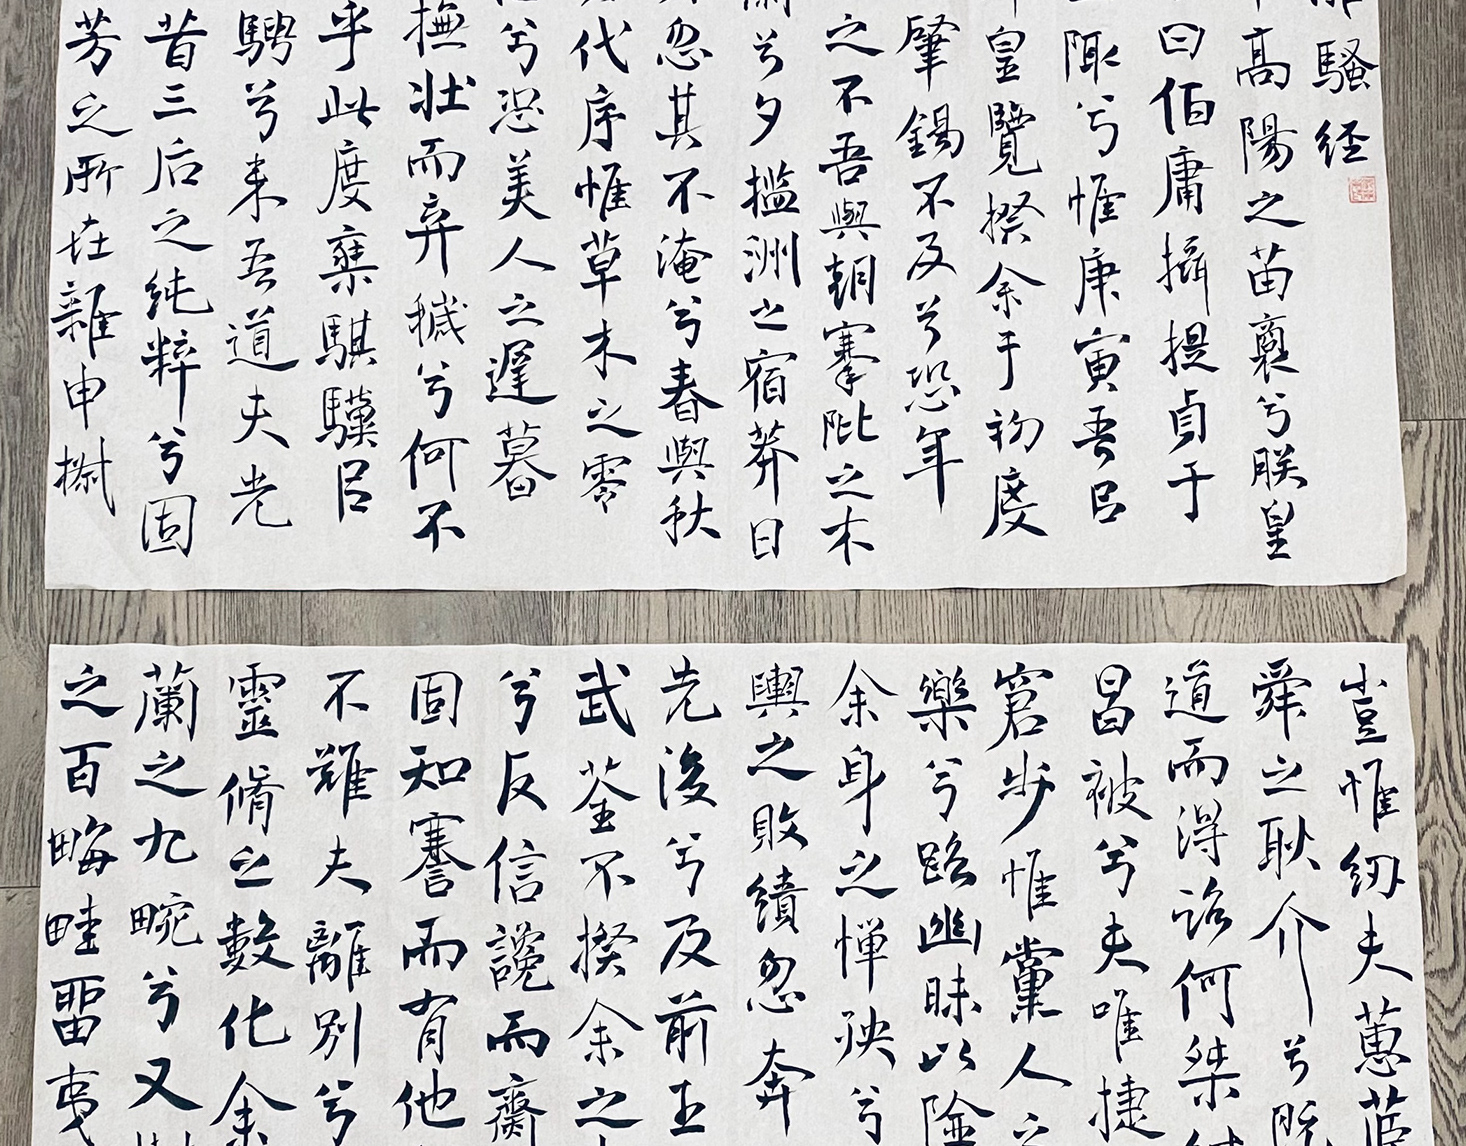 騷經
高陽之苗裔兮朕皇
曰伯庸攝提貞于
陬兮惟庚寅吾㠯
皇覽揆余于初度
肇錫
不及兮恐年
之不吾與朝搴阰之木
兮夕擥洲之宿莽日
忽其不淹兮春與秋
代序惟草木之零
兮恐美人之遲暮
撫壯而弃穢兮何不
乎此度椉騏驥㠯
騁兮来吾道夫先
昔三后之純粹兮固
芳之所在雜申椒
豈惟紉夫蕙茝
舜之耿介兮既
道而得路何桀
昌被兮夫唯捷
窘步惟黨人之
樂兮路幽昧以險
余身之憚殃兮
輿之敗績忽奔
先後兮及前王
武荃不揆余之
兮反信讒而齌
固知謇而有他
不難夫離別兮
靈脩之數化余
蘭之九畹兮又
之百畮畦留夷